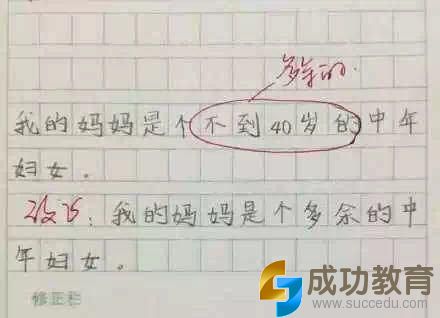 多余的.
我的妈妈是个不到40岁的中年
妇女。
改正:我的妈妈是个多余的中
年妇女。
修正栏
成功教育
www.succedu.com